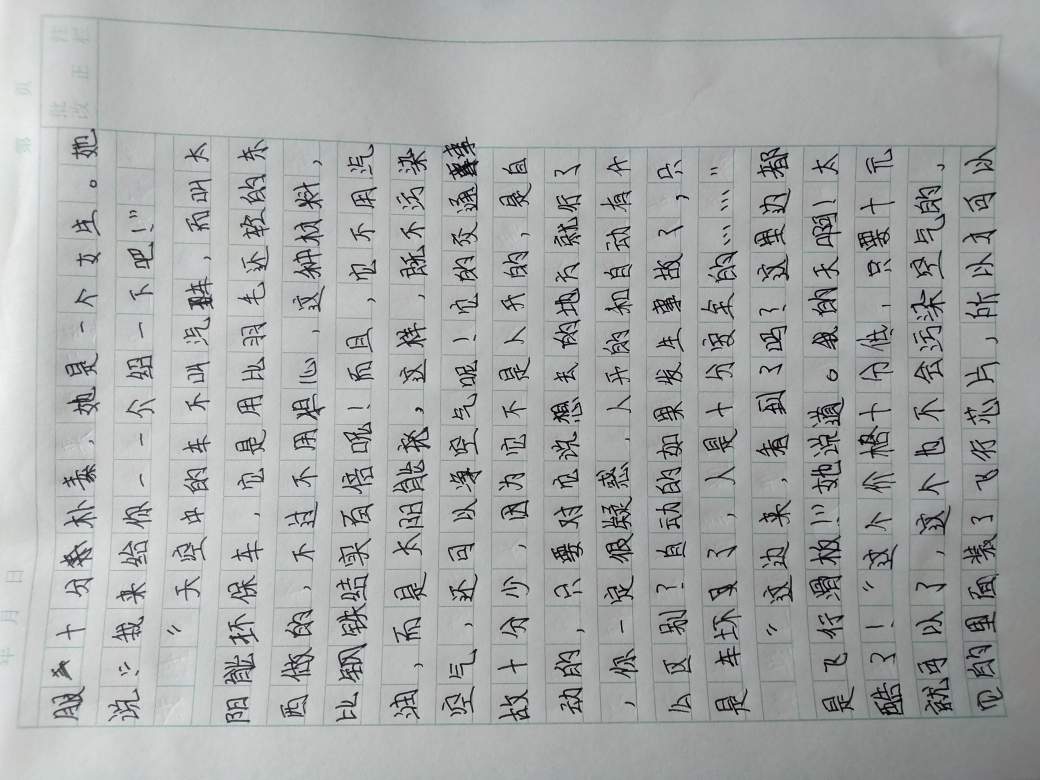 服十分朴素，她是一个女生。她
说：“我来给你一一介绍一下吧！”
“天空中的车不叫汽车，而叫太
阳能环保车，它是用比羽毛还轻的东
西做的，不过不用担心，这种材料，
比钢铁结实百倍呢！而且，它也不用汽
油，而是太阳能，这样，既不污染
空气，还可以净空气呢！它的交通事
故十分少，因为它不是人开的，是自
动的，只要对它说想去的地方就行了
，你一定很疑惑，人开的和自动有什
么区别？自动的如果发生事故了，只
是车坏了，人是十分安全的……”
“这边来，看到了吗？这里边都
是飞行滑板！”她说道。我的天啊！太
酷了！“这个价格十分低，只要十元
就可以了，这个也不会污染空气的，
它的里面装了飞行芯片，所以才可以
年 月 日
第 页
批改
正